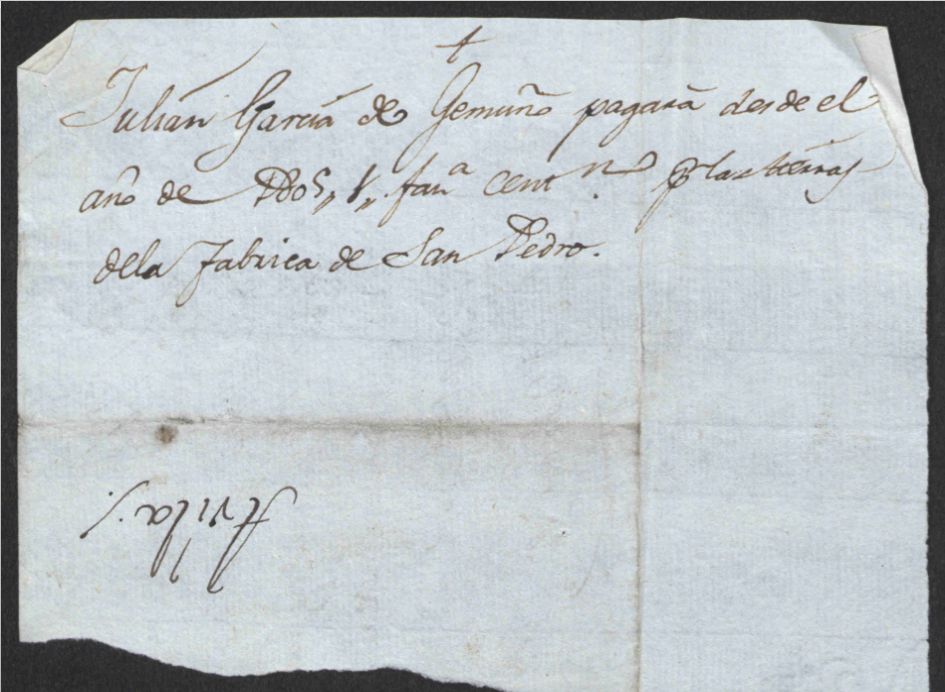 +
Julián García de Gemuño pagará desde el
año de fanª centnº p las tierras
dela fabrica de San Pedro.
Avila.